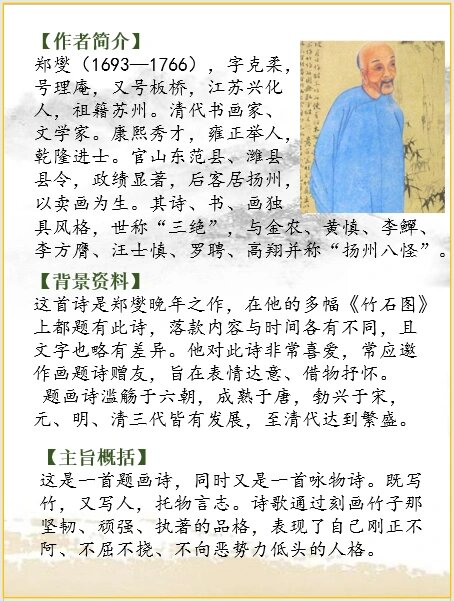 【作者简介】
郑燮（1693—1766），字克柔，
号理庵，又号板桥，江苏兴化
人，祖籍苏州。清代书画家、
文学家。康熙秀才，雍正举人，
乾隆进士。官山东范县、潍县
县令，政绩显著，后客居扬州，
以卖画为生。其诗、书、画独
具风格，世称“三绝”，与金农、黄慎、李鱓、
李方膺、汪士慎、罗聘、高翔并称“扬州八怪”。
【背景资料】
这首诗是郑燮晚年之作，在他的多幅《竹石图》
上都题有此诗，落款内容与时间各有不同，且
文字也略有差异。他对此诗非常喜爱，常应邀
作画题诗赠友，旨在表情达意、借物抒怀。
题画诗滥觞于六朝，成熟于唐，勃兴于宋，
元、明、清三代皆有发展，至清代达到繁盛。
【主旨概括】
这是一首题画诗，同时又是一首咏物诗。既写
竹，又写人，托物言志。诗歌通过刻画竹子那
坚韧、顽强、执著的品格，表现了自己刚正不
阿、不屈不挠、不向恶势力低头的人格。